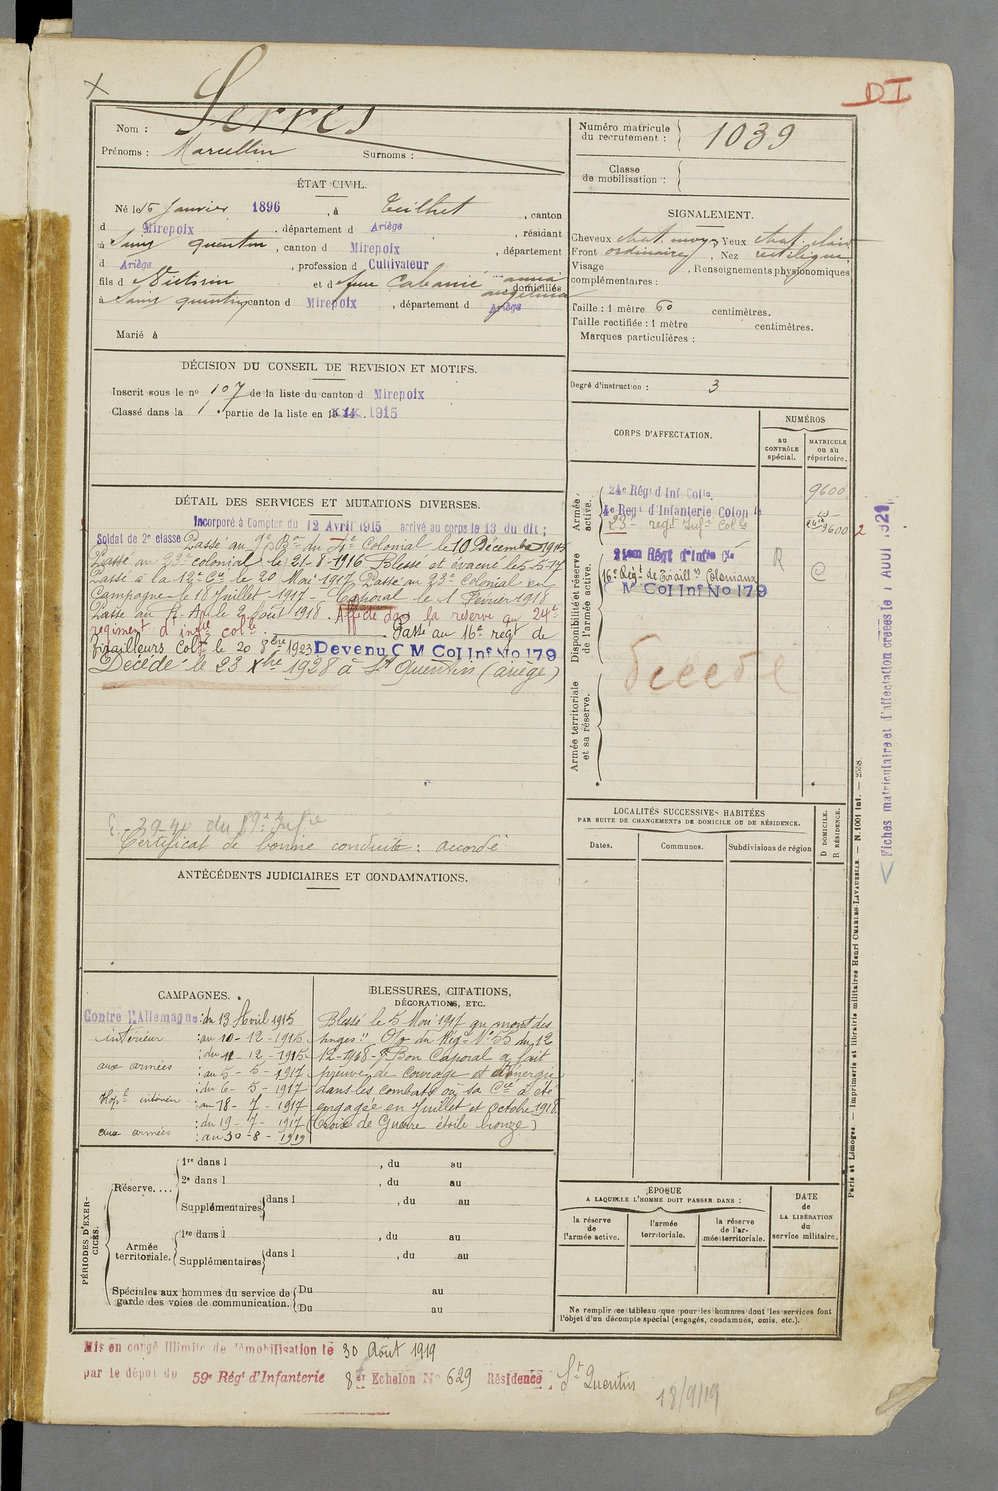 DI
Nom : Serres
Prénoms : Marcellin Surnoms :
Numéro matricule du recrutement : 1039
Classe de mobilisation :
ÉTAT CIVIL.
Né le 15 Janvier 1896, à Teilhet, canton
d Mirepoix, département d Ariège, résidant
à Saint quentin, canton d Mirepoix, département
d Ariège, profession d Cultivateur
fils d Victorin et d feue Cabanié anna angelina domiciliés
à Saint quentin, canton d Mirepoix, département d Ariège
Marié à
SIGNALEMENT.
Cheveux chat. Yeux chat. clair
Front ordinaire, Nez rectiligne
Visage , Renseignements physionomiques
complémentaires :
Taille : 1 mètre 60 centimètres.
Taille rectifiée : 1 mètre centimètres.
Marques particulières :
Degré d'instruction : 3
DÉCISION DU CONSEIL DE REVISION ET MOTIFS.
Inscrit sous le n° 107 de la liste du canton d Mirepoix
Classé dans la 1 partie de la liste en 1915
DÉTAIL DES SERVICES ET MUTATIONS DIVERSES.
Incorporé à Compter du 12 Avril 1915 arrivé au corps le 13 du dit ;
Soldat de 2e classe Passé au 9e Bon du 4e Colonial le 10 Décembre 1915
Passé au 23e colonial le 31-8-1916 Blessé et évacué le 5-5-17
Passé à la 12e Cie le 20 Mai 1917 Passé au 23e Colonial en
Campagne le 18 Juillet 1917 - Caporal le 1 Février 1918
Passé au le 2 Août 1918. Affecté dans la réserve au 24e
régiment d'infie colle Passé au 16e regt de
tirailleurs Colx le 20 8bre 1923 Devenu C M Col Inf No 179
Décédé le 23 Xbre 1928 à St Quentin (ariège)
Certificat de bonne conduite : accordé
CORPS D'AFFECTATION.
NUMÉROS
au CONTRÔLE spécial.
MATRICULE ou au répertoire.
Armée active.
24e Régt d Inf. Colle. 9600
4e Regt d'Infanterie Coloniale
23e regt Infie Colle 9600
Disponibilité et réserve de l'armée active.
Régt d'Infie Cle R
16e Régt de Tiraillrs Coloniaux C
C M Col Inf No 179
Armée territoriale et sa réserve.
Décédé
Fiches matriculaire et d'affectation créées le 1 Août 1921
ANTÉCÉDENTS JUDICIAIRES ET CONDAMNATIONS.
LOCALITÉS SUCCESSIVES HABITÉES
PAR SUITE DE CHANGEMENTS DE DOMICILE OU DE RÉSIDENCE.
Dates. Communes. Subdivisions de région
D DOMICILE. R RÉSIDENCE.
CAMPAGNES.
Contre l'Allemagne : du 13 Avril 1915
intérieur : au 10-12-1915
: du 11-12-1915
aux armées : au 5-5-1917
: du 6-5-1917
Hopl intérieur : au 18-7-1917
: du 19-7-1917
aux armées : au 30-8-1919
BLESSURES, CITATIONS,
DÉCORATIONS, ETC.
Blessé le 5 Mai 1917 au mont des
singes". O/ du Régt N° 55 du 12
12-1918 - "Bon Caporal a fait
preuve de courage et d'énergie
dans les combats où sa Cie a été
engagée en Juillet et Octobre 1918.
(Croix de Guerre étoile bronze)
PÉRIODES D'EXERCICES.
Réserve....
1re dans l , du au
2e dans l , du au
Supplémentaires dans l , du au
Armée territoriale.
1re dans l , du au
Supplémentaires dans l , du au
Spéciales aux hommes du service de garde des voies de communication.
Du au
Du au
ÉPOQUE
A LAQUELLE L'HOMME DOIT PASSER DANS :
la réserve de l'armée active.
l'armée territoriale.
la réserve de l'armée territoriale.
DATE de LA LIBÉRATION du service militaire.
Ne remplir ce tableau que pour les hommes dont les services font
l'objet d'un décompte spécial (engagés, condamnés, omis, etc.).
Paris et Limoges. — Imprimerie et librairie militaires Henri CHARLES-LAVAUZELLE. — N. 1001 int. — 2558.
Mis en congé illimité de démobilisation le 30 Août 1919
par le dépôt du 59e Régt d'Infanterie 8e Echelon No 629 Résidence : St Quentin
18/9/19